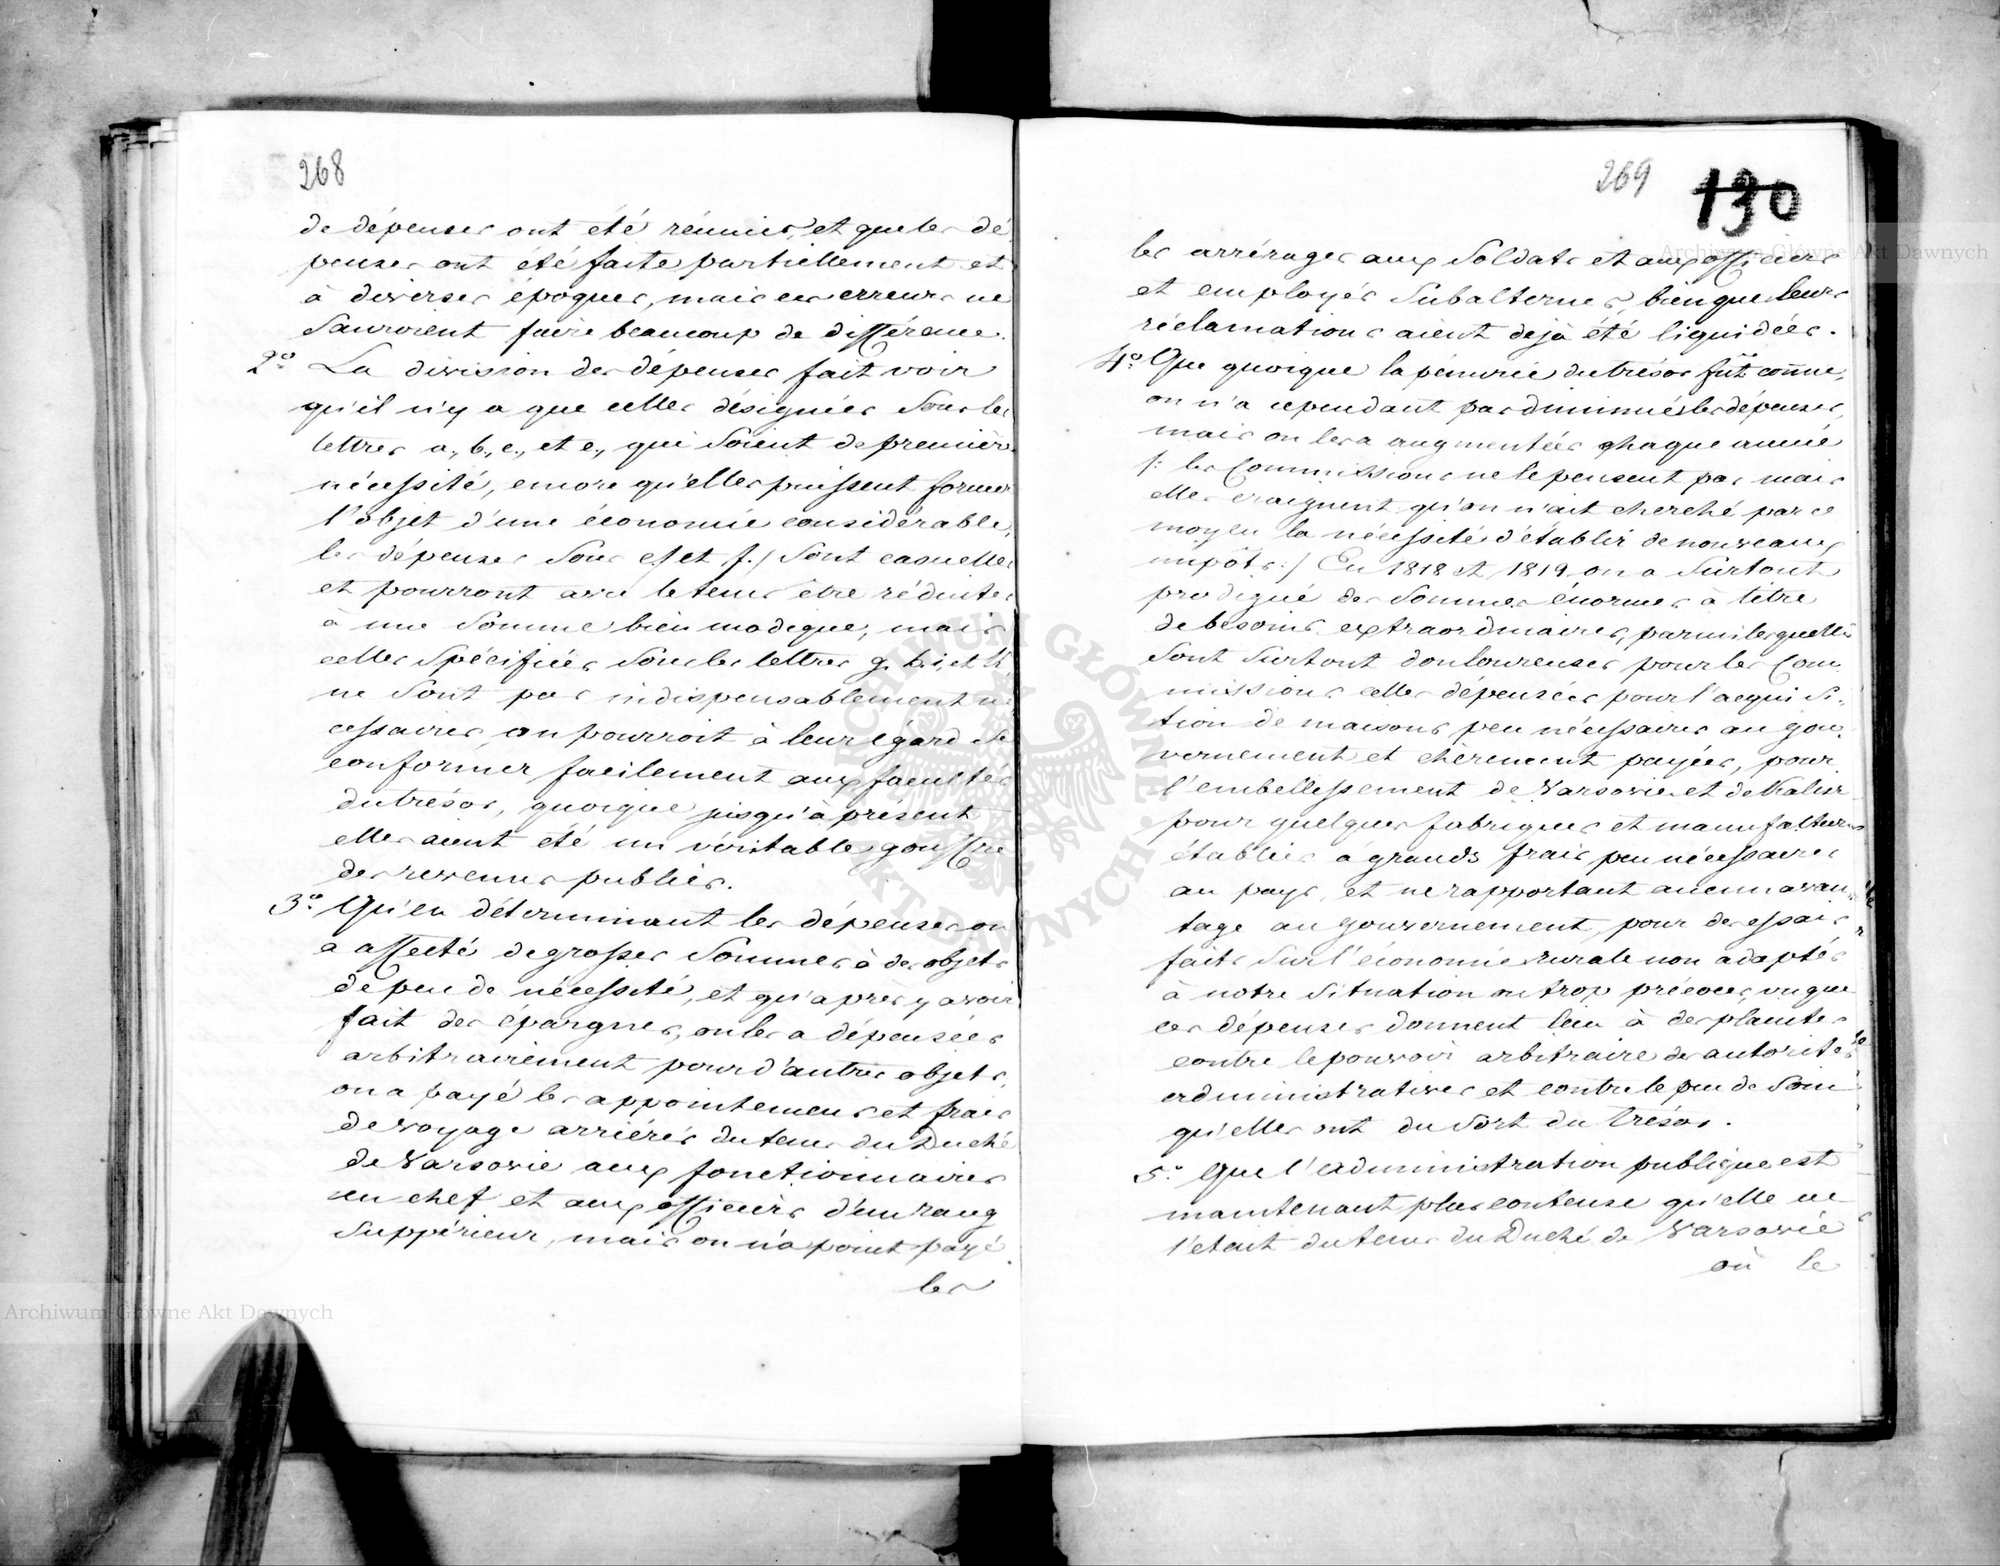 268
de dépenses ont été réunies, et que les dé
penses ont été faite partiellement et
à diverses époques, mais ces erreurs ne
Sauroient faire beaucoup de différence.
2.° La division des dépenses fait voir
qu'il n'y a que celles désignées Sous les
lettres a., b., c., et e., qui Soient de première
nécessité, encore qu'elles puissent former
l'objet d'une économie considérable,
les dépenses Sous et f./ Sont casuelles
et pourront avec le tems être réduites
à une Somme bien modique, mais
celles Spécifiées Sous les lettres g. h. i et k
ne Sont pas indispensablement né
cessaires, on pourroit à leur égard se
conformer facilement aux facultés
du trésor, quoique jusqu'à présent
elles aient été un véritable gouffre
des revenus publics.
3.° Qu'en déterminant les dépenses on
a affecté de grosses Sommes à des objets
de peu de nécessité, et qu'après y avoir
fait des epargnes, on les a dépensées
arbitrairement pour d'autres objets,
on a payé les appointemens et frais
de voyage arriérés du tems du Duché
de Varsovie aux fonctionnaires
en chef et aux officiers d'un rang
Suppérieur, mais on n'a point payé
les
269
130
les arrérages aux Soldats et aux officiers
et employés Subalternes, bien que leurs
réclamations aient dejà été liquidées.
4.° Que quoique la pénurie du trésor fût connue,
on n'a cependant pas diminué les dépenses,
mais on les a augmentées chaque année
/: les Commissions ne le pensent pas mais
elles craignent qu'on n'ait cherché par ce
moyen la nécessité d'établir de nouveaux
impôts :/ En 1818 et 1819 on a Surtout
prodigué des Sommes énormes à titre
de besoins extraordinaires, parmi lesquelles
Sont Surtout douloureuses pour les Com
missions celles dépensées pour l'acquisi-
tion de maisons peu nécessaires au gou
vernement et chèrement payées, pour
l'embellissement de Varsovie et de Kalisz
pour quelques fabriques et manufactures
établies à grands frais, peu nécessaires
au pays, et ne rapportant aucun avan
tage au gouvernement, pour des essais
faits Sur l'économie rurale non adaptés
à notre Situation ou trop précoces, vu que
ces dépenses donnent lieu à des plaintes
contre le pouvoir arbitraire des autorités
administratives et contre le peu de Soin
qu'elles ont du Sort du trésor.
5.° Que l'administration publique est
maintenant plus couteuse qu'elle ne
l'etait du tems du Duché de Varsovie
où le
Archiwum Główne Akt Dawnych
Archiwum Główne Akt Dawnych
ARCHIWUM GŁÓWNE AKT DAWNYCH